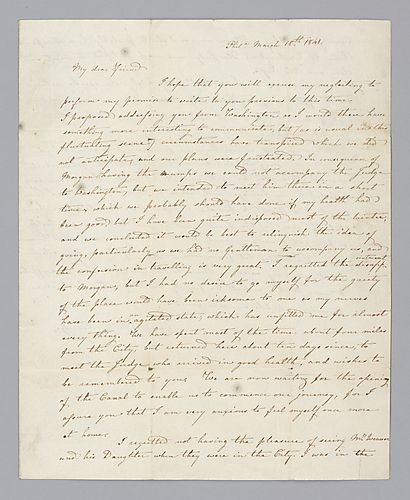 Phila March 18th 1841.
My dear Friend
I hope that you will excuse my neglecting to
perform my promise to write to you previous to this time.
I proposed addressing you from Washington as I would there have
something more interesting to communicate, but (as is usual in this
fluctuating scene) circumstances have transpired which we did
not anticipate, and our plans were frustrated. In consequence of
Morgan having the mumps we could not accompany the Judge
to Washington, but we intended to meet him there in a short
time, which we probably should have done if my health had
been good but I have been quite indisposed most of the winter,
and we concluded it would be best to relinquish the idea of
going, particularly as we had no Gentleman to accompany us, and
the confusion in travelling is very great. I regretted the
to Morgan, but I had no desire to go myself for the gaiety
of the place would have been irksome to me as my nerves
have been in an agitated state, which has unfitted me for almost
every thing. We have spent most of the time about four miles
from the City, but returned here about ten days since, to
meet the Judge who arrived in good health, and wishes to
be remembered to you. We are now waiting for the opening
of the Canal to enable us to commence our journey, for I
assure you that I am very anxious to feel myself once more
at home.
I regretted not having the pleasure of seeing Mr.
and his Daughter when they were in the City. I was in the